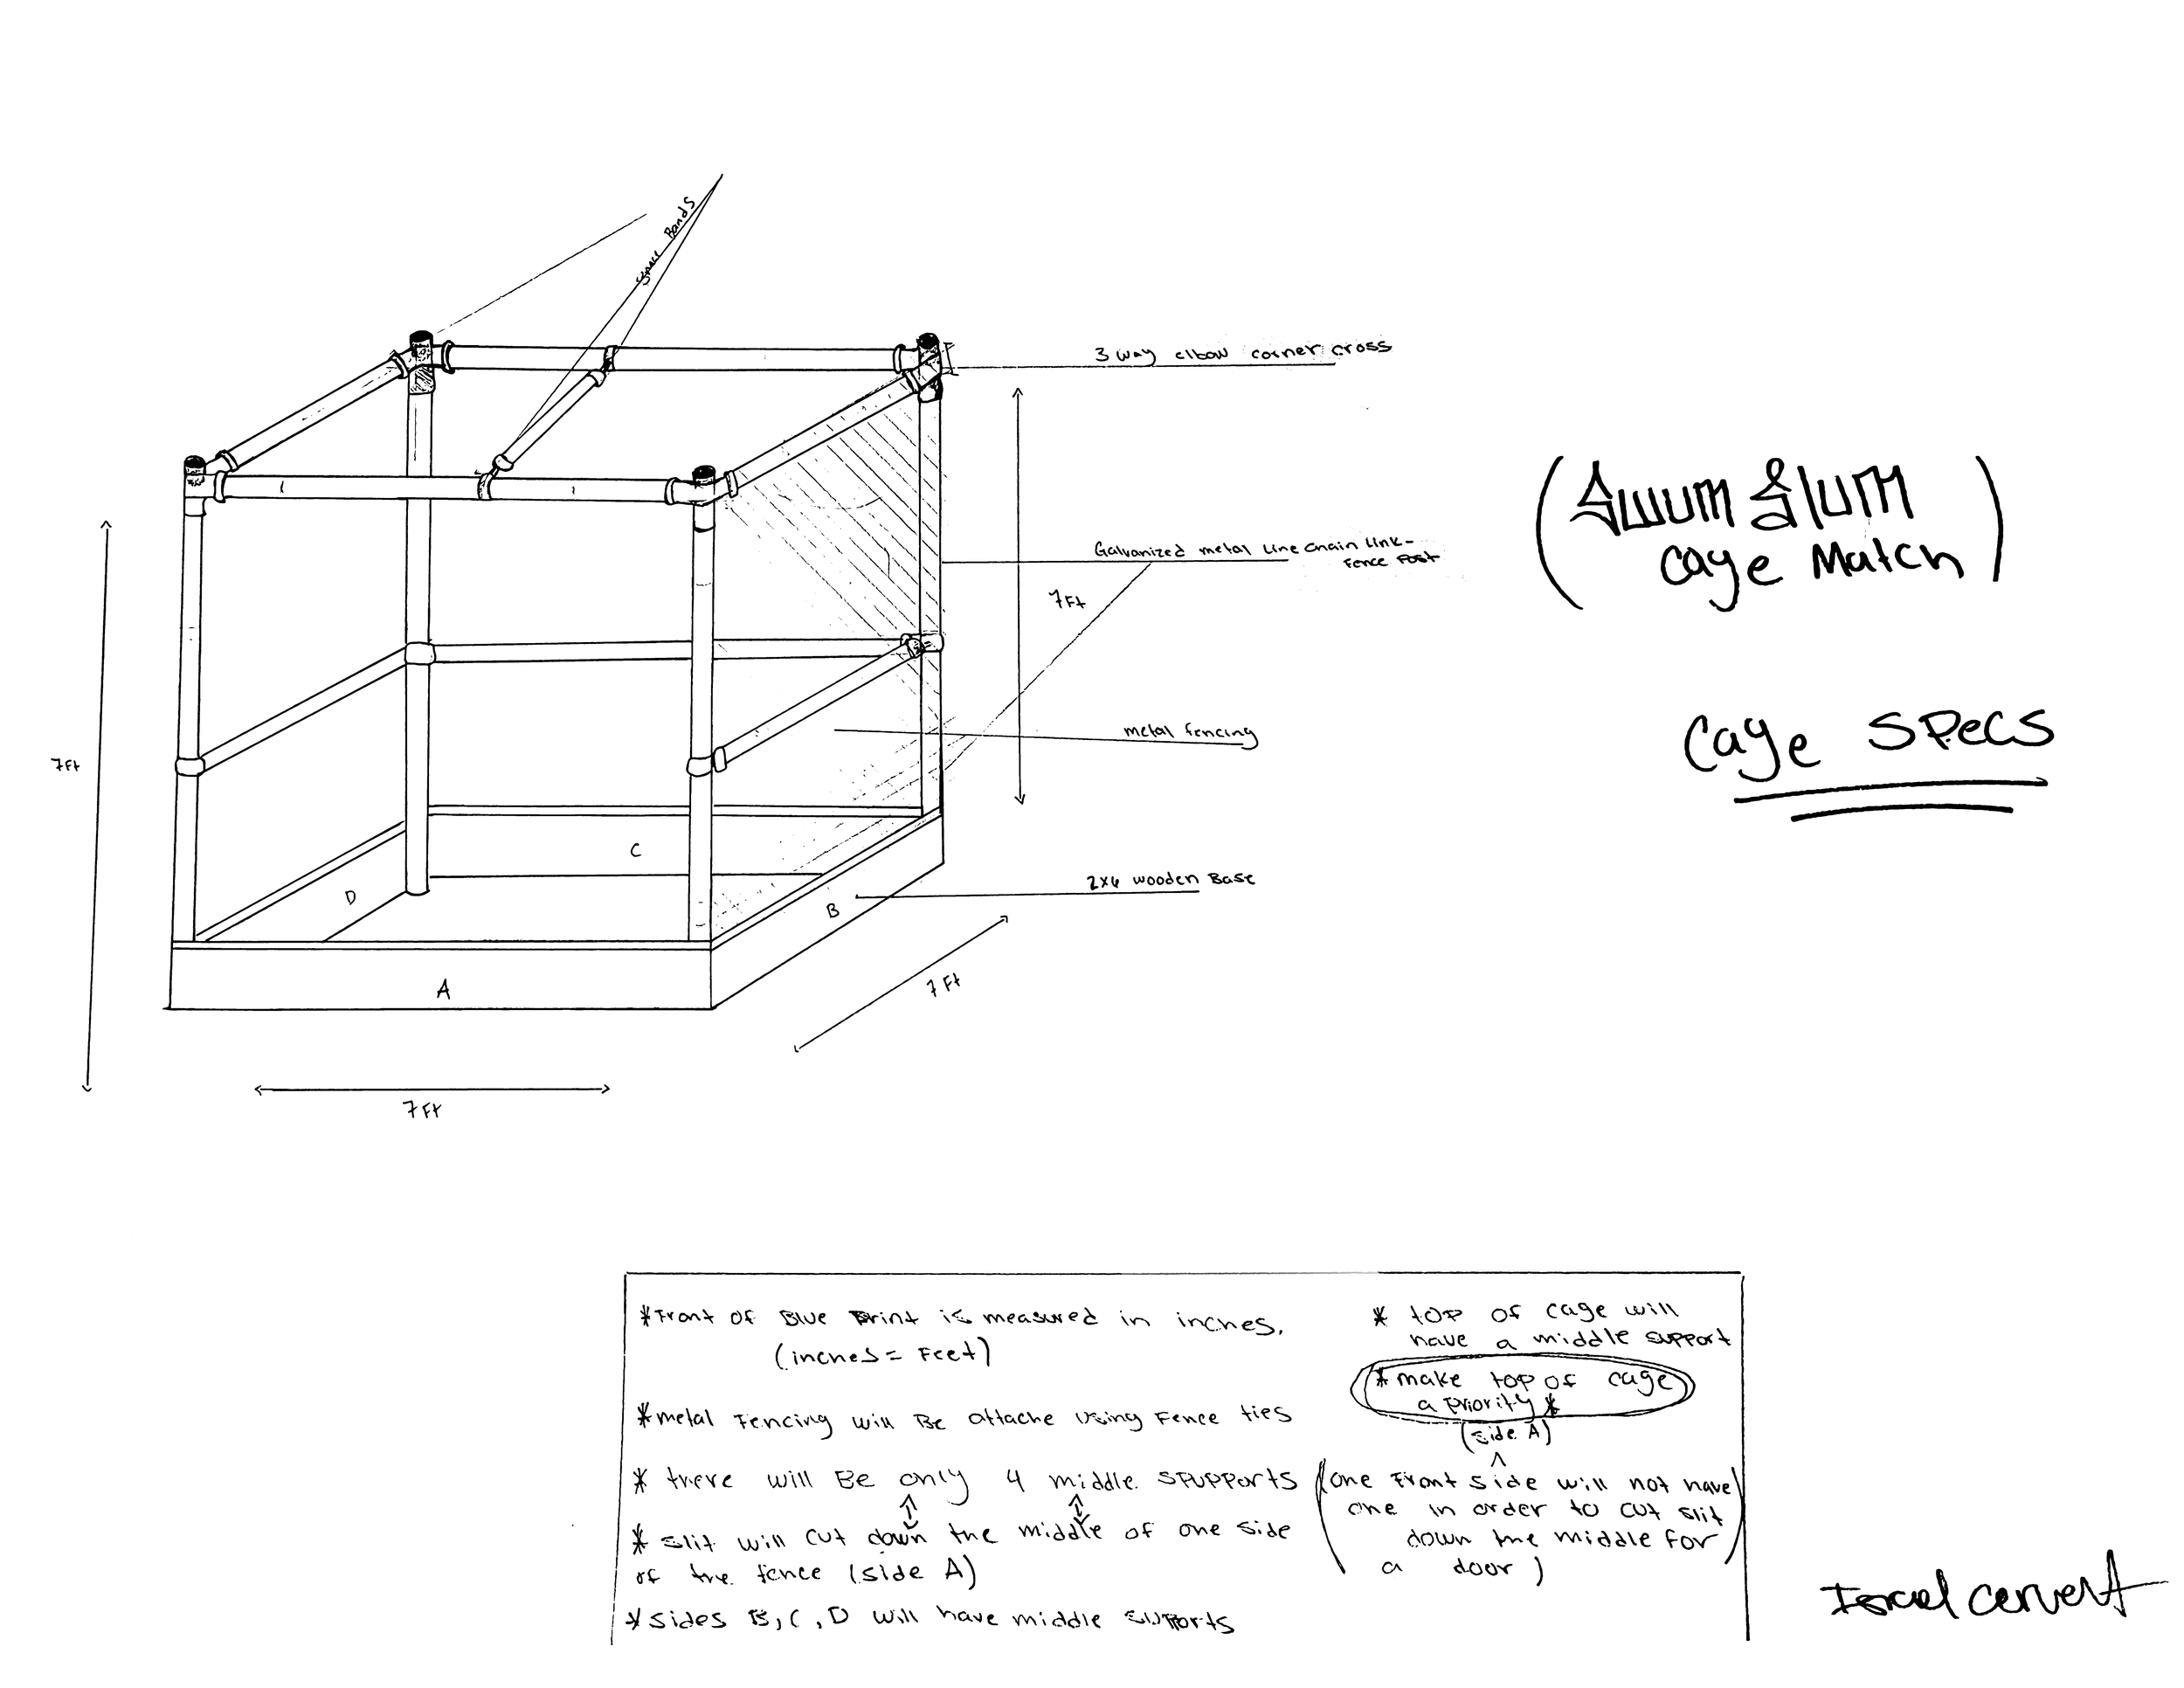 Brace Bands
3 way elbow corner cross
Galvanized metal Line Chain Link-
Fence Post
7Ft
metal fencing
7Ft
C
D
B
2x6 wooden Base
A
7 Ft
7 Ft
Cage Match
Cage Specs
*Front of Blue Print is measured in inches.
(inches = Feet)
*metal Fencing will Be attache Using Fence ties
* there will Be only 4 middle
* slit will cut down the middle of one side
of the fence (side A)
*sides B, C, D will have middle supports
* top of cage will
have a middle support
*make top of cage
a Priority*
(side A)
(one Front side will not have
one in order to cut slit
down the middle for
a door)
Israel